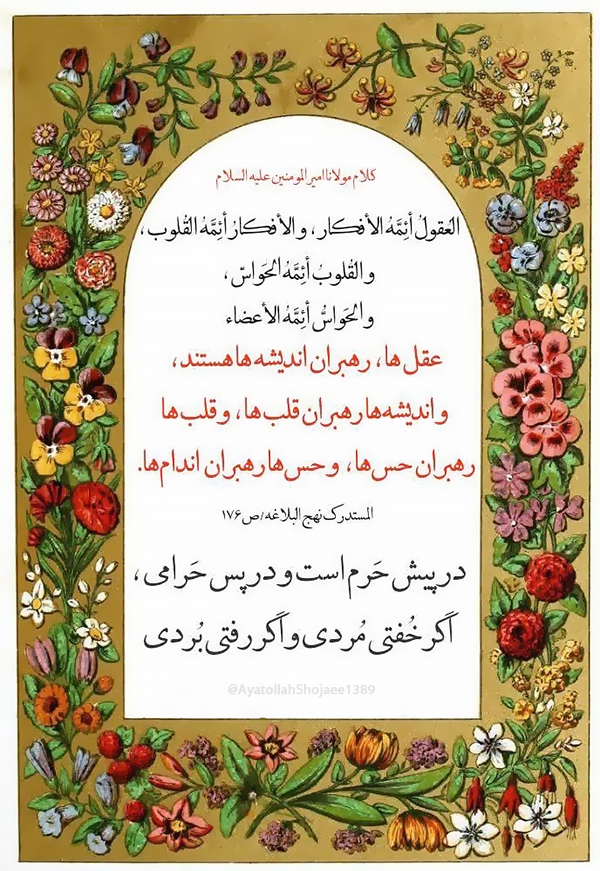 کلام مولانا امیرالمومنین علیه السلام
العَقولُ أئِمَّهُ الأفکار، والأفکارُ أئِمَّهُ القُلوب،
والقُلوبُ أئِمَّهُ الحَواسّ،
والحَواسُّ أئِمَّهُ الأعضاء
عقل ها، رهبران اندیشه ها هستند،
و اندیشه‌ها رهبران قلب‌ها، و قلب‌ها
رهبران حس‌ها، و حس‌ها رهبران اندام‌ها.
المستدرک نهج البلاغه/ص۱۷۶
در پیش حَرم است و در پس حَرامی،
اَگر خُفتی مُردی و اَگر رفتی بُردی
@AyatollahShojaee1389